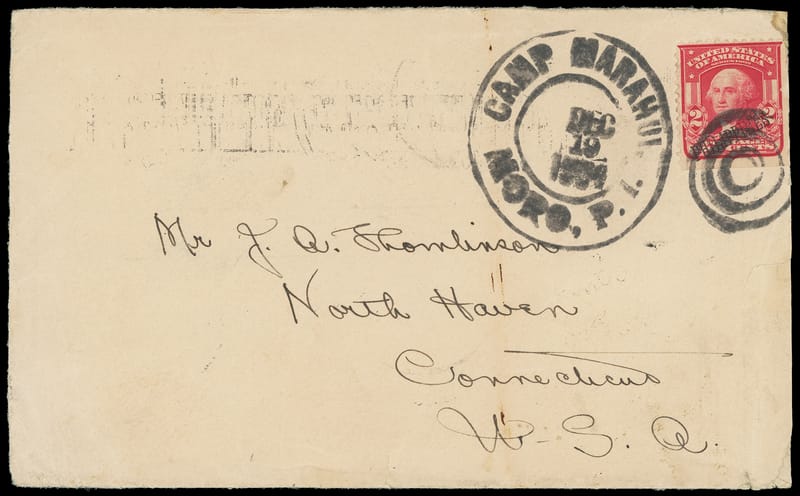 CAMP MARAHUI
DEC
19
1904
MORO, P. I.
UNITED STATES
OF AMERICA
2 2
Mr J. A. Thomlinson
North Haven
Connecticut
U. S. A.